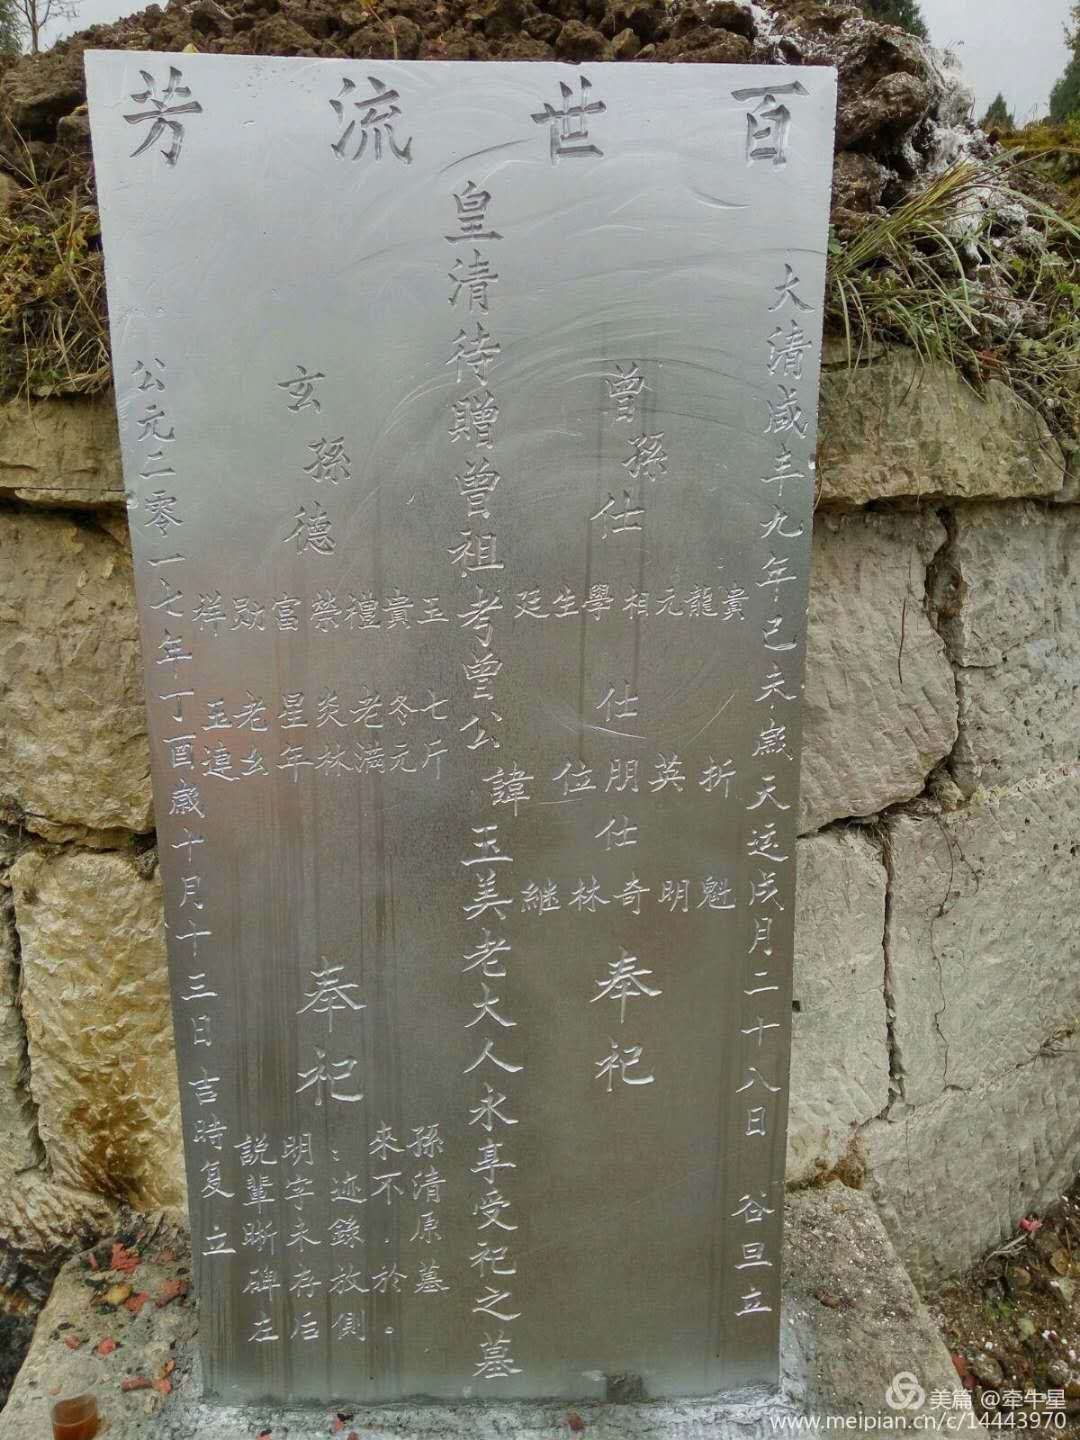 百世流芳
大清咸丰九年己未歲天运戌月二十八日 谷旦立
曾孫仕
貴龍元相學生廷
仕
折英朋位
仕
魁明奇林継
奉祀
皇清待贈曾祖考曾公諱玉美老大人永享受祀之墓
玄孫德
玉貴禮榮富勛祥
七斤 冬元 老満 炎林 星年 老幺 玉連
奉祀
說明：來孫
輩字迹不清
晰未錄.原
碑存放於墓
左后側。
公元二零一七年丁酉歲十月十三日吉時复立
美篇 @牵牛星
www.meipian.cn/c/14443970